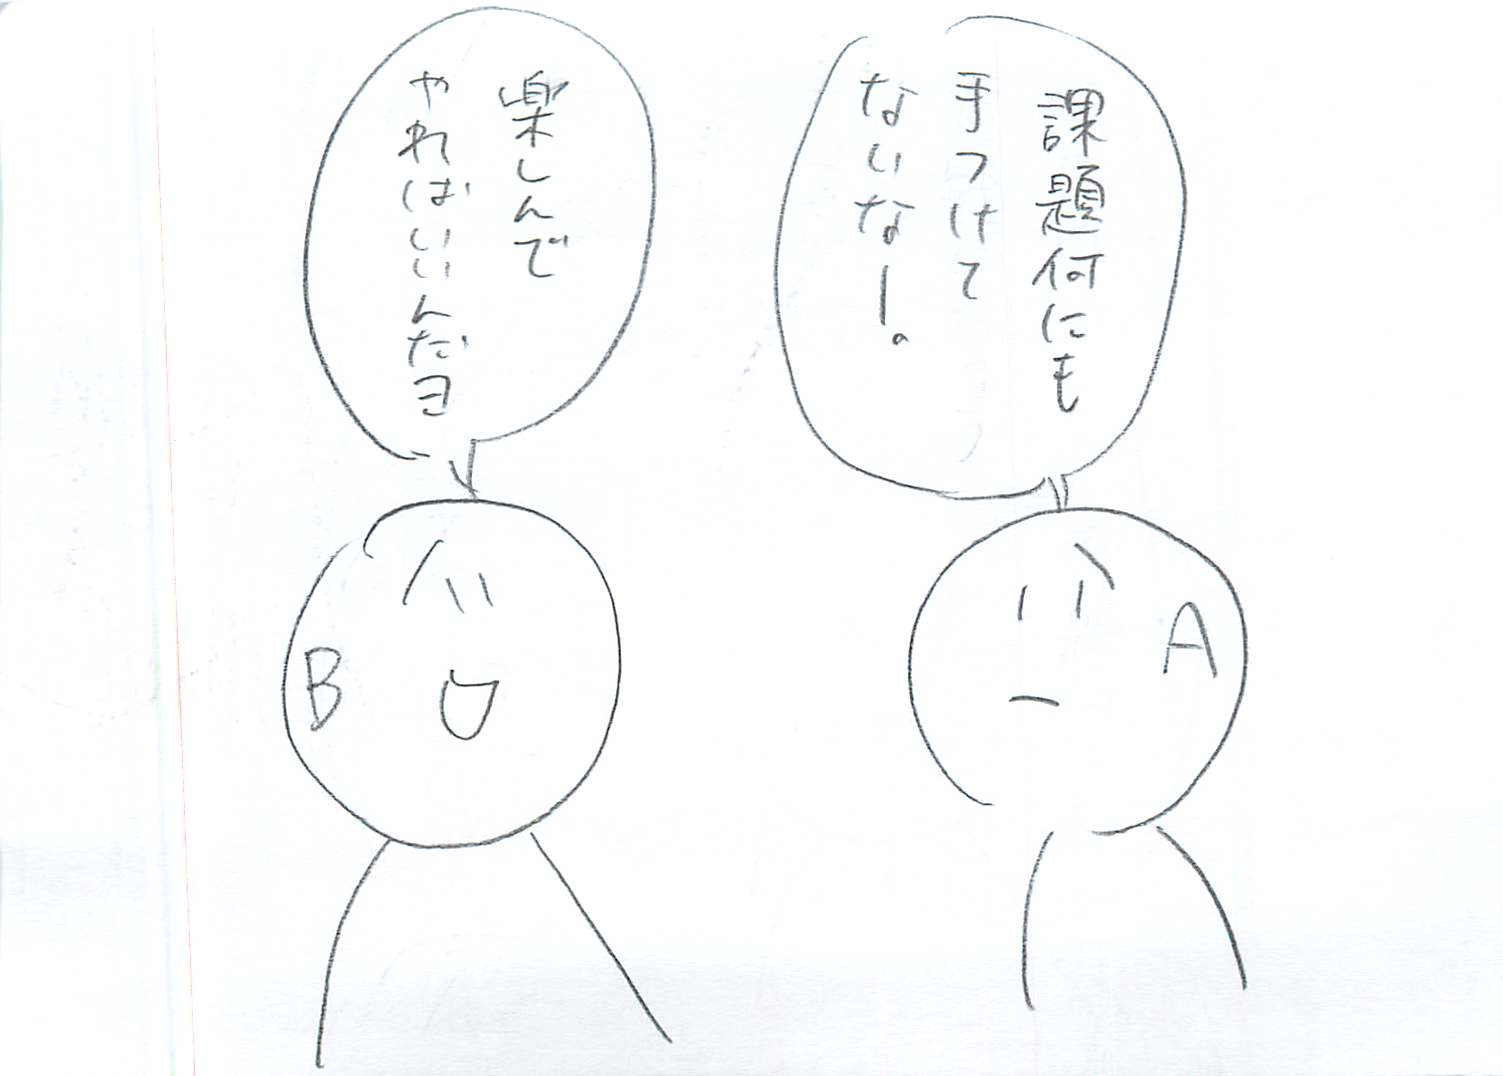 課題何にも
手つけて
ないなー。
楽しんで
やればいいんだヨ
A
B